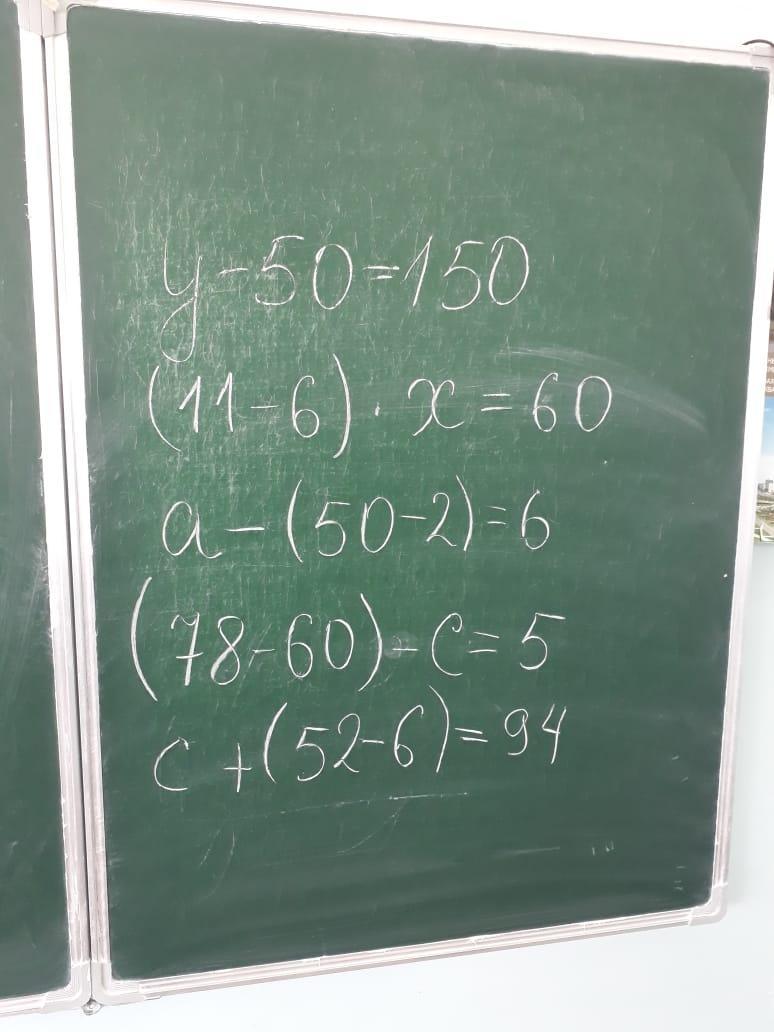 y-50=150
(11-6)·x=60
a-(50-2)=6
(78-60)-c=5
c+(52-6)=94